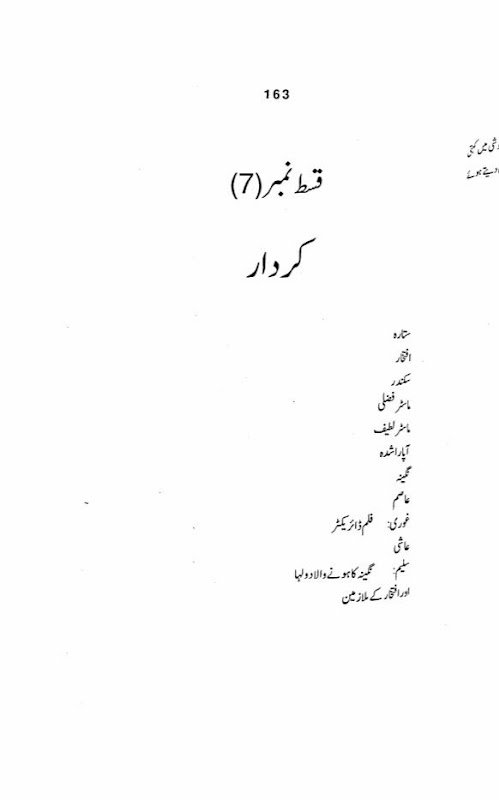 163
میں کہتی
دیتے ہوئے
قسط نمبر (7)
کردار
ستارہ
افتخار
سکندر
ماسٹر فضلی
ماسٹر لطیف
آپا راشدہ
نگینہ
عاصم
غوری: فلم ڈائریکٹر
عاشی
سلیم: نگینہ کا ہونے والا دولہا
اور افتخار کے ملازمین